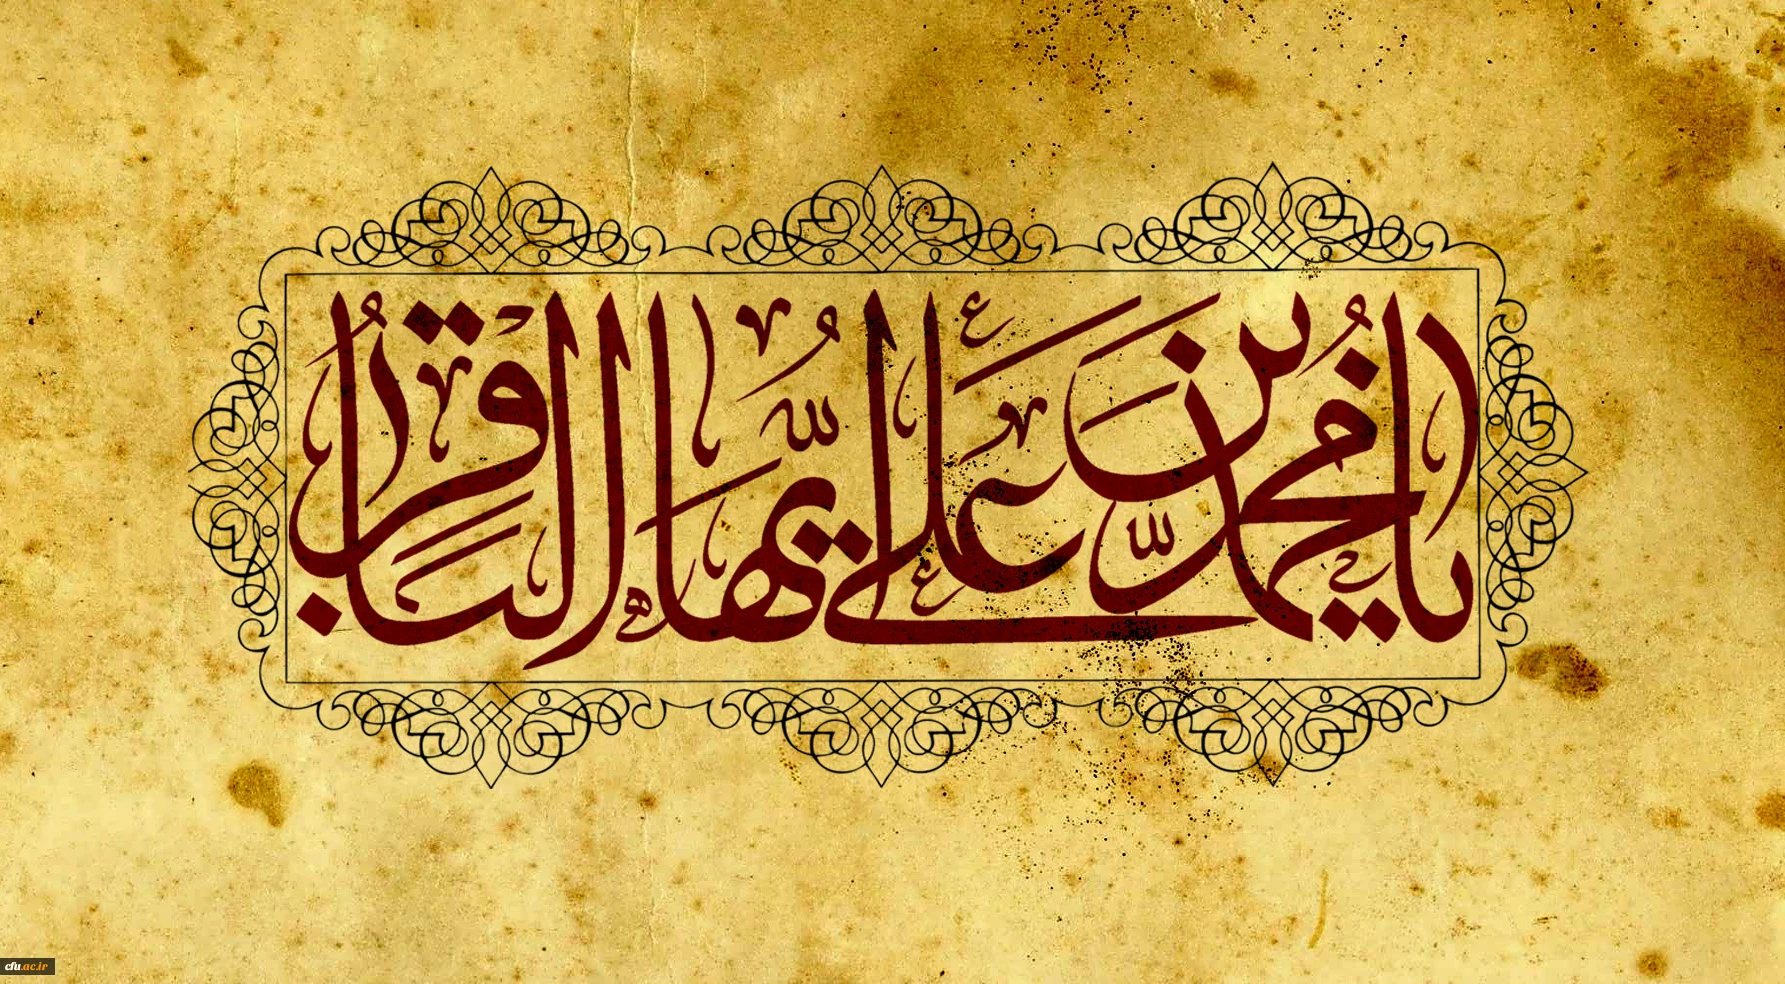 یا مُحَمَّدَ بْنَ عَلِیٍّ اَیُّهَا الْباقِرُ
cfu.ac.ir